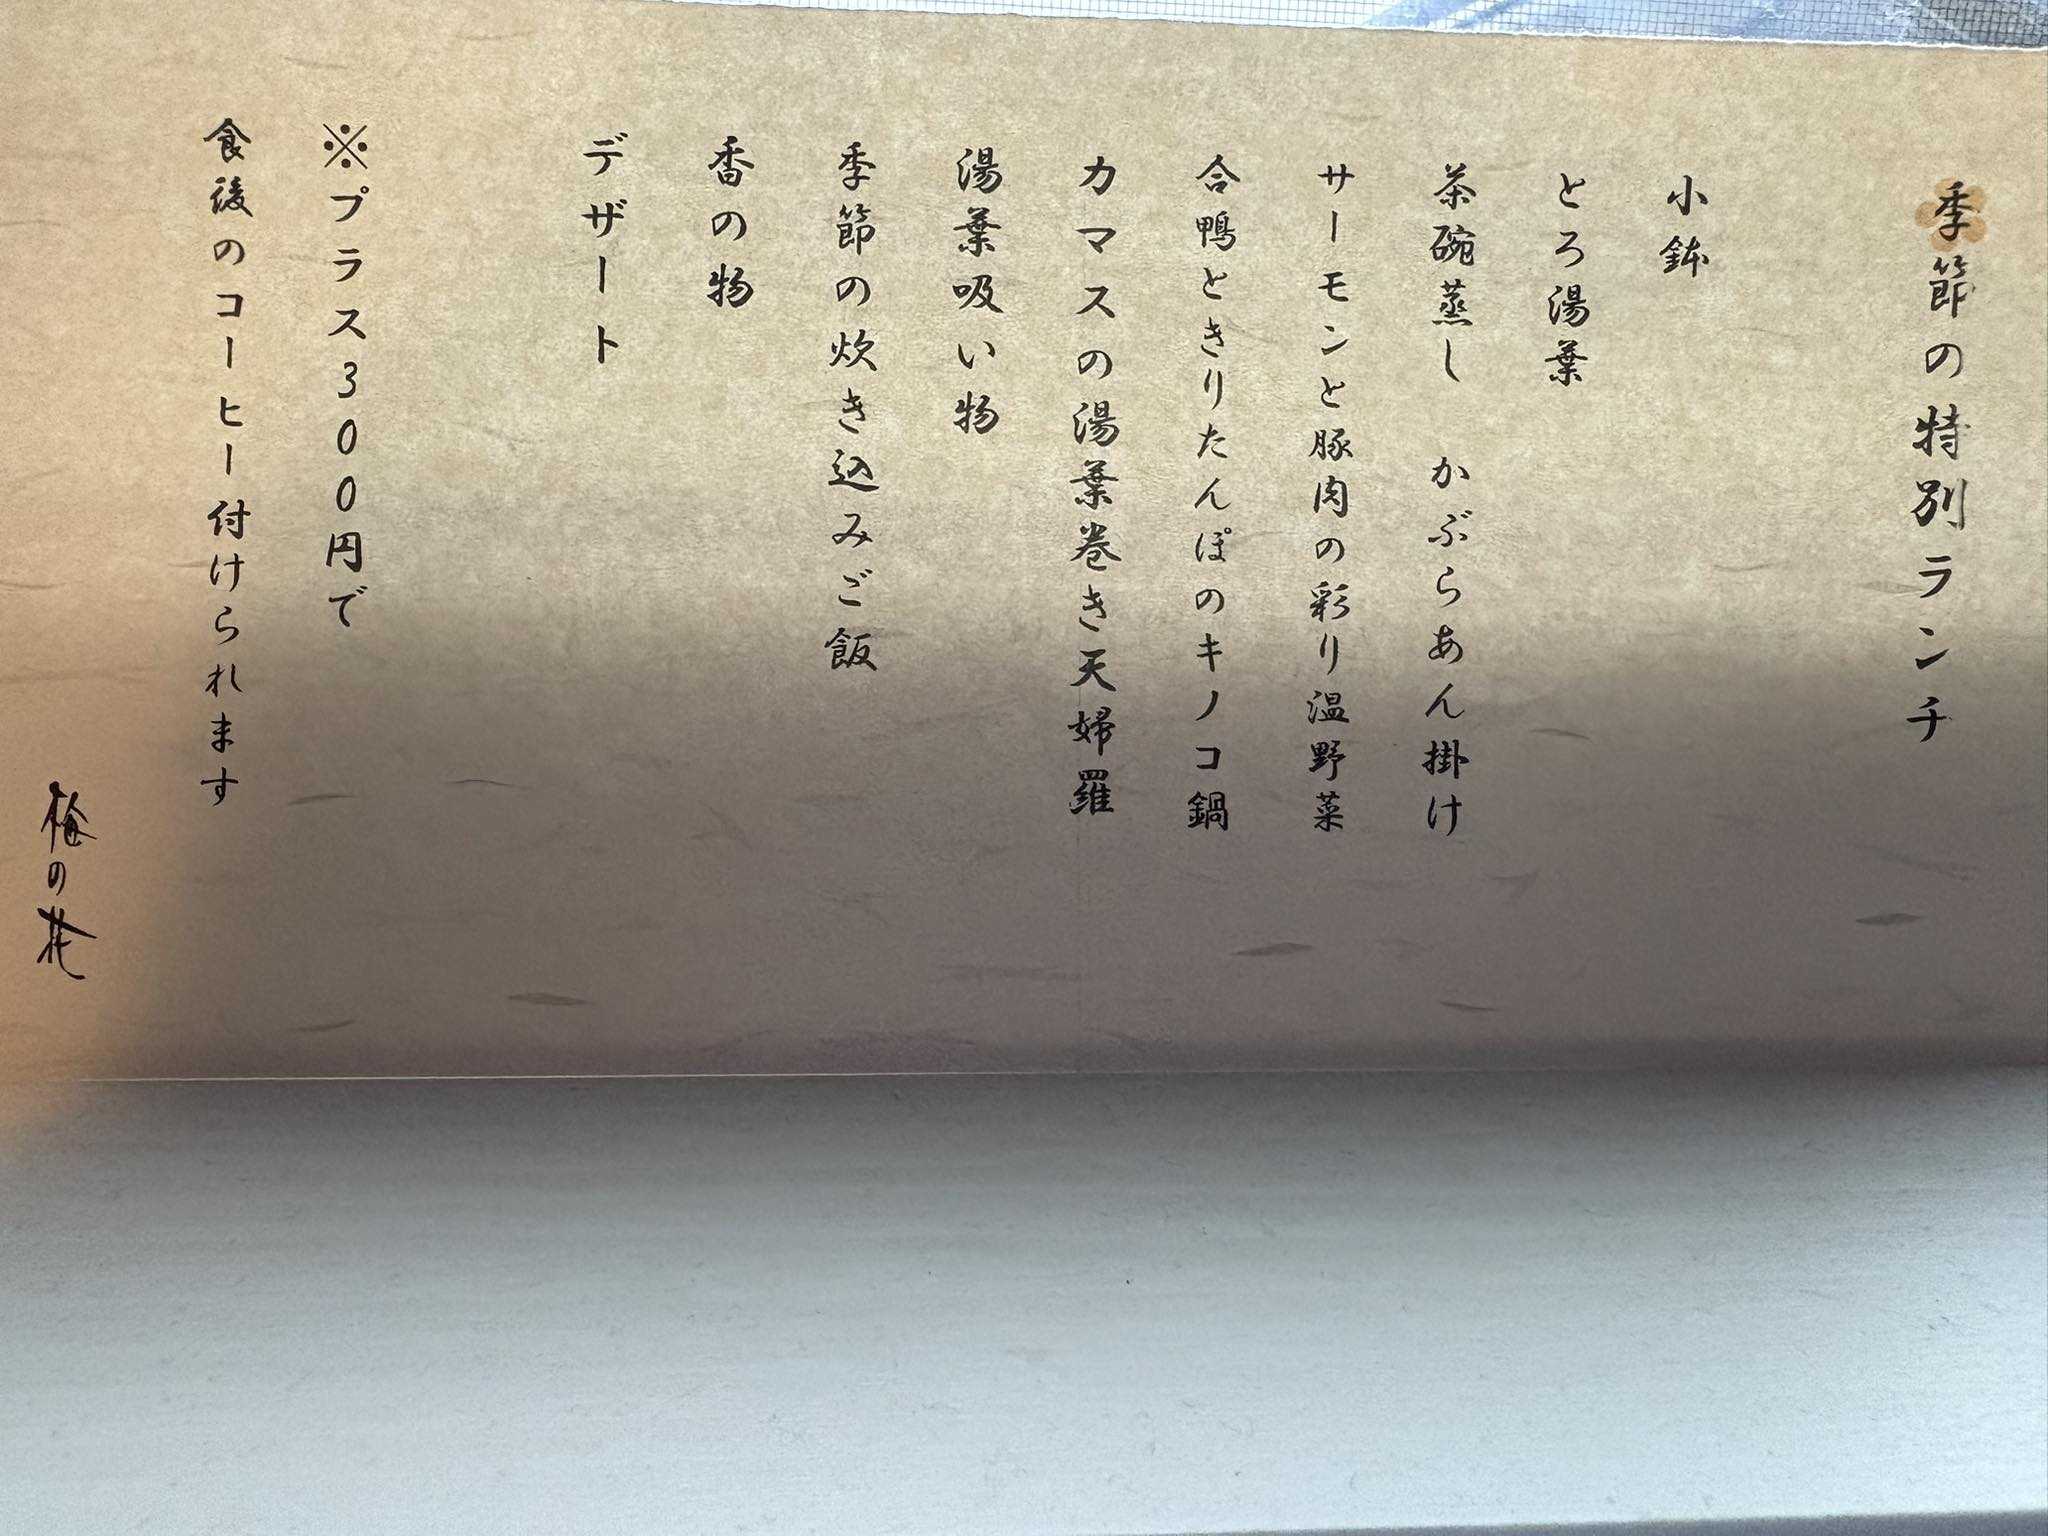 季節の特別ランチ
小鉢
とろ湯葉
茶碗蒸し　かぶらあん掛け
サーモンと豚肉の彩り温野菜
合鴨ときりたんぽのキノコ鍋
カマスの湯葉巻き天婦羅
湯葉吸い物
季節の炊き込みご飯
香の物
デザート
※プラス300円で
食後のコーヒー付けられます
梅の花